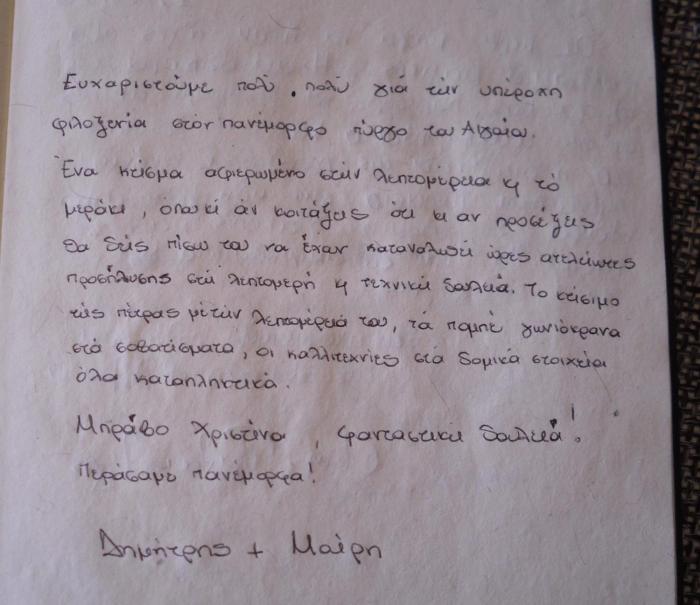 Ευχαριστούμε πολύ, πολύ γιά την υπέροχη
φιλοξενία στον πανέμορφο πύργο του Αιγαίου.
Ένα κτίσμα αφιερωμένο στην λεπτομέρεια κ το
μεράκι, όπου κι άν κοιτάξεις ότι κι αν προσέξεις
θα δείς πίσω του να έχουν καταναλωθεί ώρες ατελείωτες
προσήλωσης στη λεπτομερή κ τεχνική δουλειά. Το κτίσιμο
της πέτρας με την λεπτομέρειά του, τα πομπέ γωνιόκρανα
στά σοβατίσματα, οι καλλιτεχνίες στά δομικά στοιχεία
όλα καταπληκτικά.
Μπράβο Χριστίνα, φανταστική δουλειά!
Περάσαμε πανέμορφα!
Δημήτρης + Μαίρη